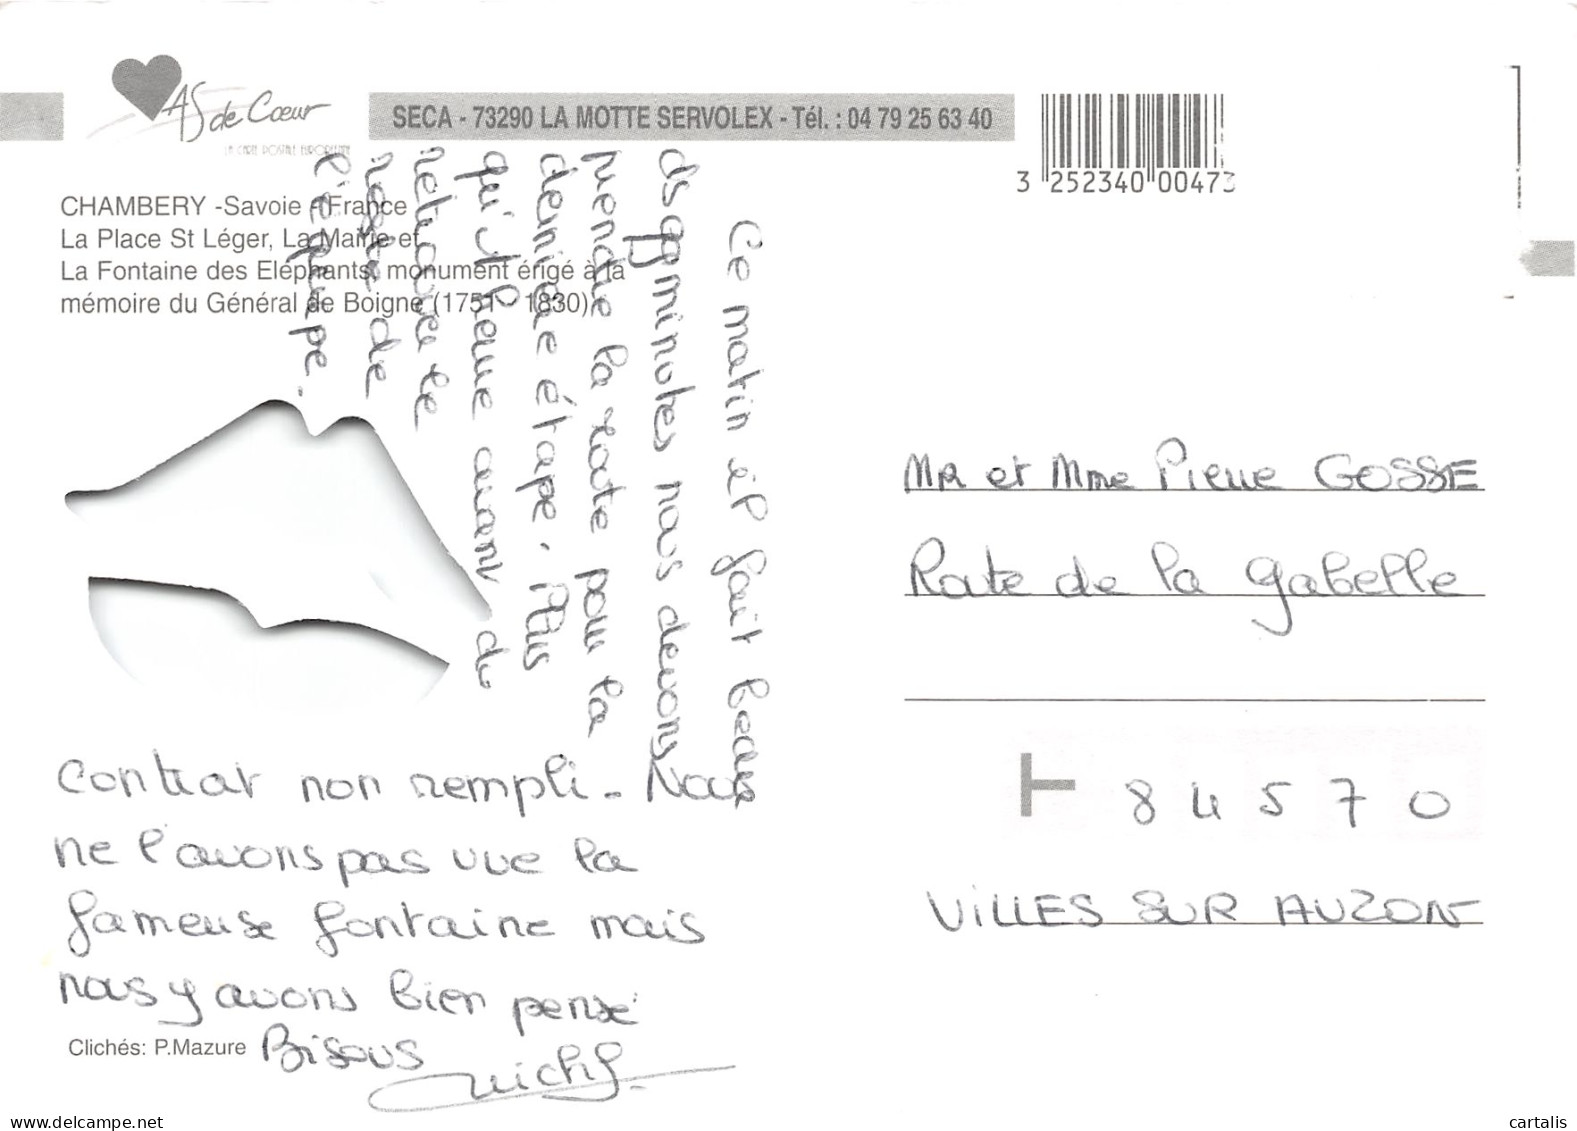 AS de Cœur
LA CARTE POSTALE EUROPEENNE
SECA - 73290 LA MOTTE SERVOLEX - Tél. : 04 79 25 63 40
3 252340 00473
CHAMBERY -Savoie - France
La Place St Léger, La Mairie et
La Fontaine des Eléphants, monument érigé à la
mémoire du Général de Boigne (1751 - 1830)
Ce matin il fait beau
ds qq minutes nous devons
prendre la route pour la
dernière étape. Plus
qu'1 heure avant de
retrouver le
reste de
l'équipe.
Contrat non rempli - Nous
ne l'avons pas vue la
fameuse fontaine mais
nous y avons bien pensé
Bisous
Clichés: P.Mazure
MR et Mme Pierre GOSSE
Route de la gabelle
84570
VILLES SUR AUZON
www.delcampe.net
cartalis